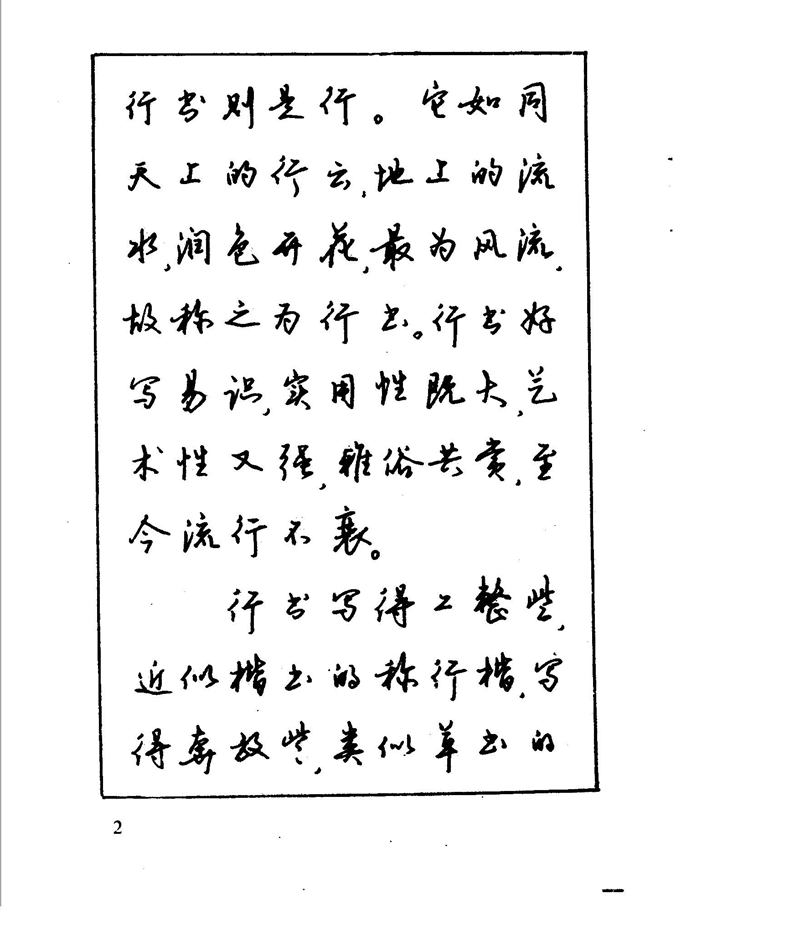 行书则是行。它如同
天上的行云,地上的流
水,润色开花,最为风流,
故称之为行书。行书好
写易识,实用性既大,艺
术性又强,雅俗共赏,至
今流行不衰。
行书写得工整些,
近似楷书的称行楷,写
得奔放些,类似草书的
2